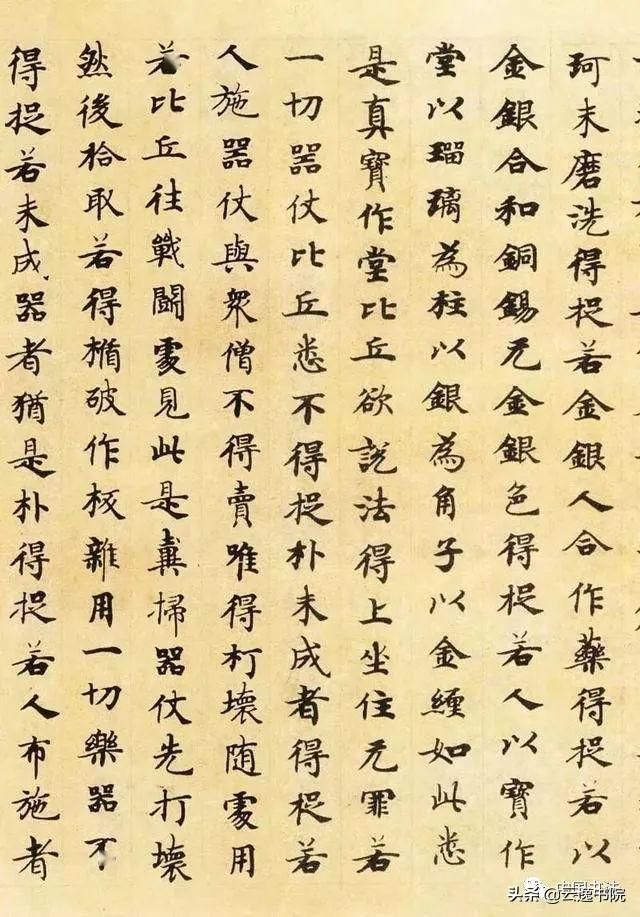 珂未磨洗得捉若金銀人合作藥得捉若以
金銀合和銅錫无金銀色得捉若人以寶作
堂以瑠璃為柱以銀為角子以金纏如此悉
是真寶作堂比丘欲說法得上坐住无罪若
一切器仗比丘悉不得捉朴未成者得捉若
人施器仗與衆僧不得賣唯得打壞隨處用
若比丘往戰鬪處見此是糞掃器仗先打壞
然後拾取若得楯破作板雜用一切樂器不
得捉若未成器者猶是朴得捉若人布施者
中国书法
头条@云逸书院